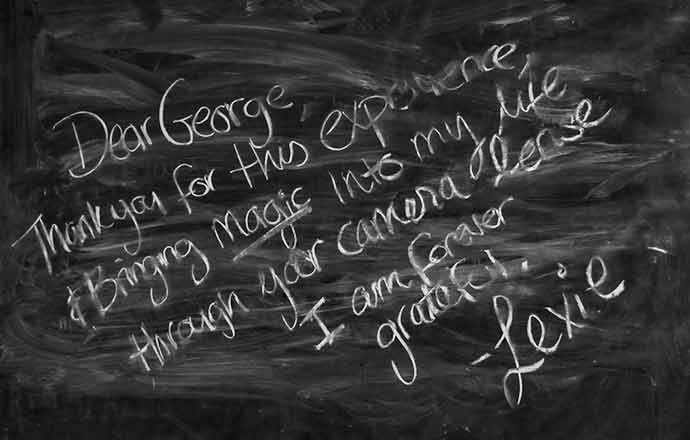 Dear George,
Thankyou for this experience,
& Bringing magic into my life
through your camera lense
I am forever
grateful.
-Lexie